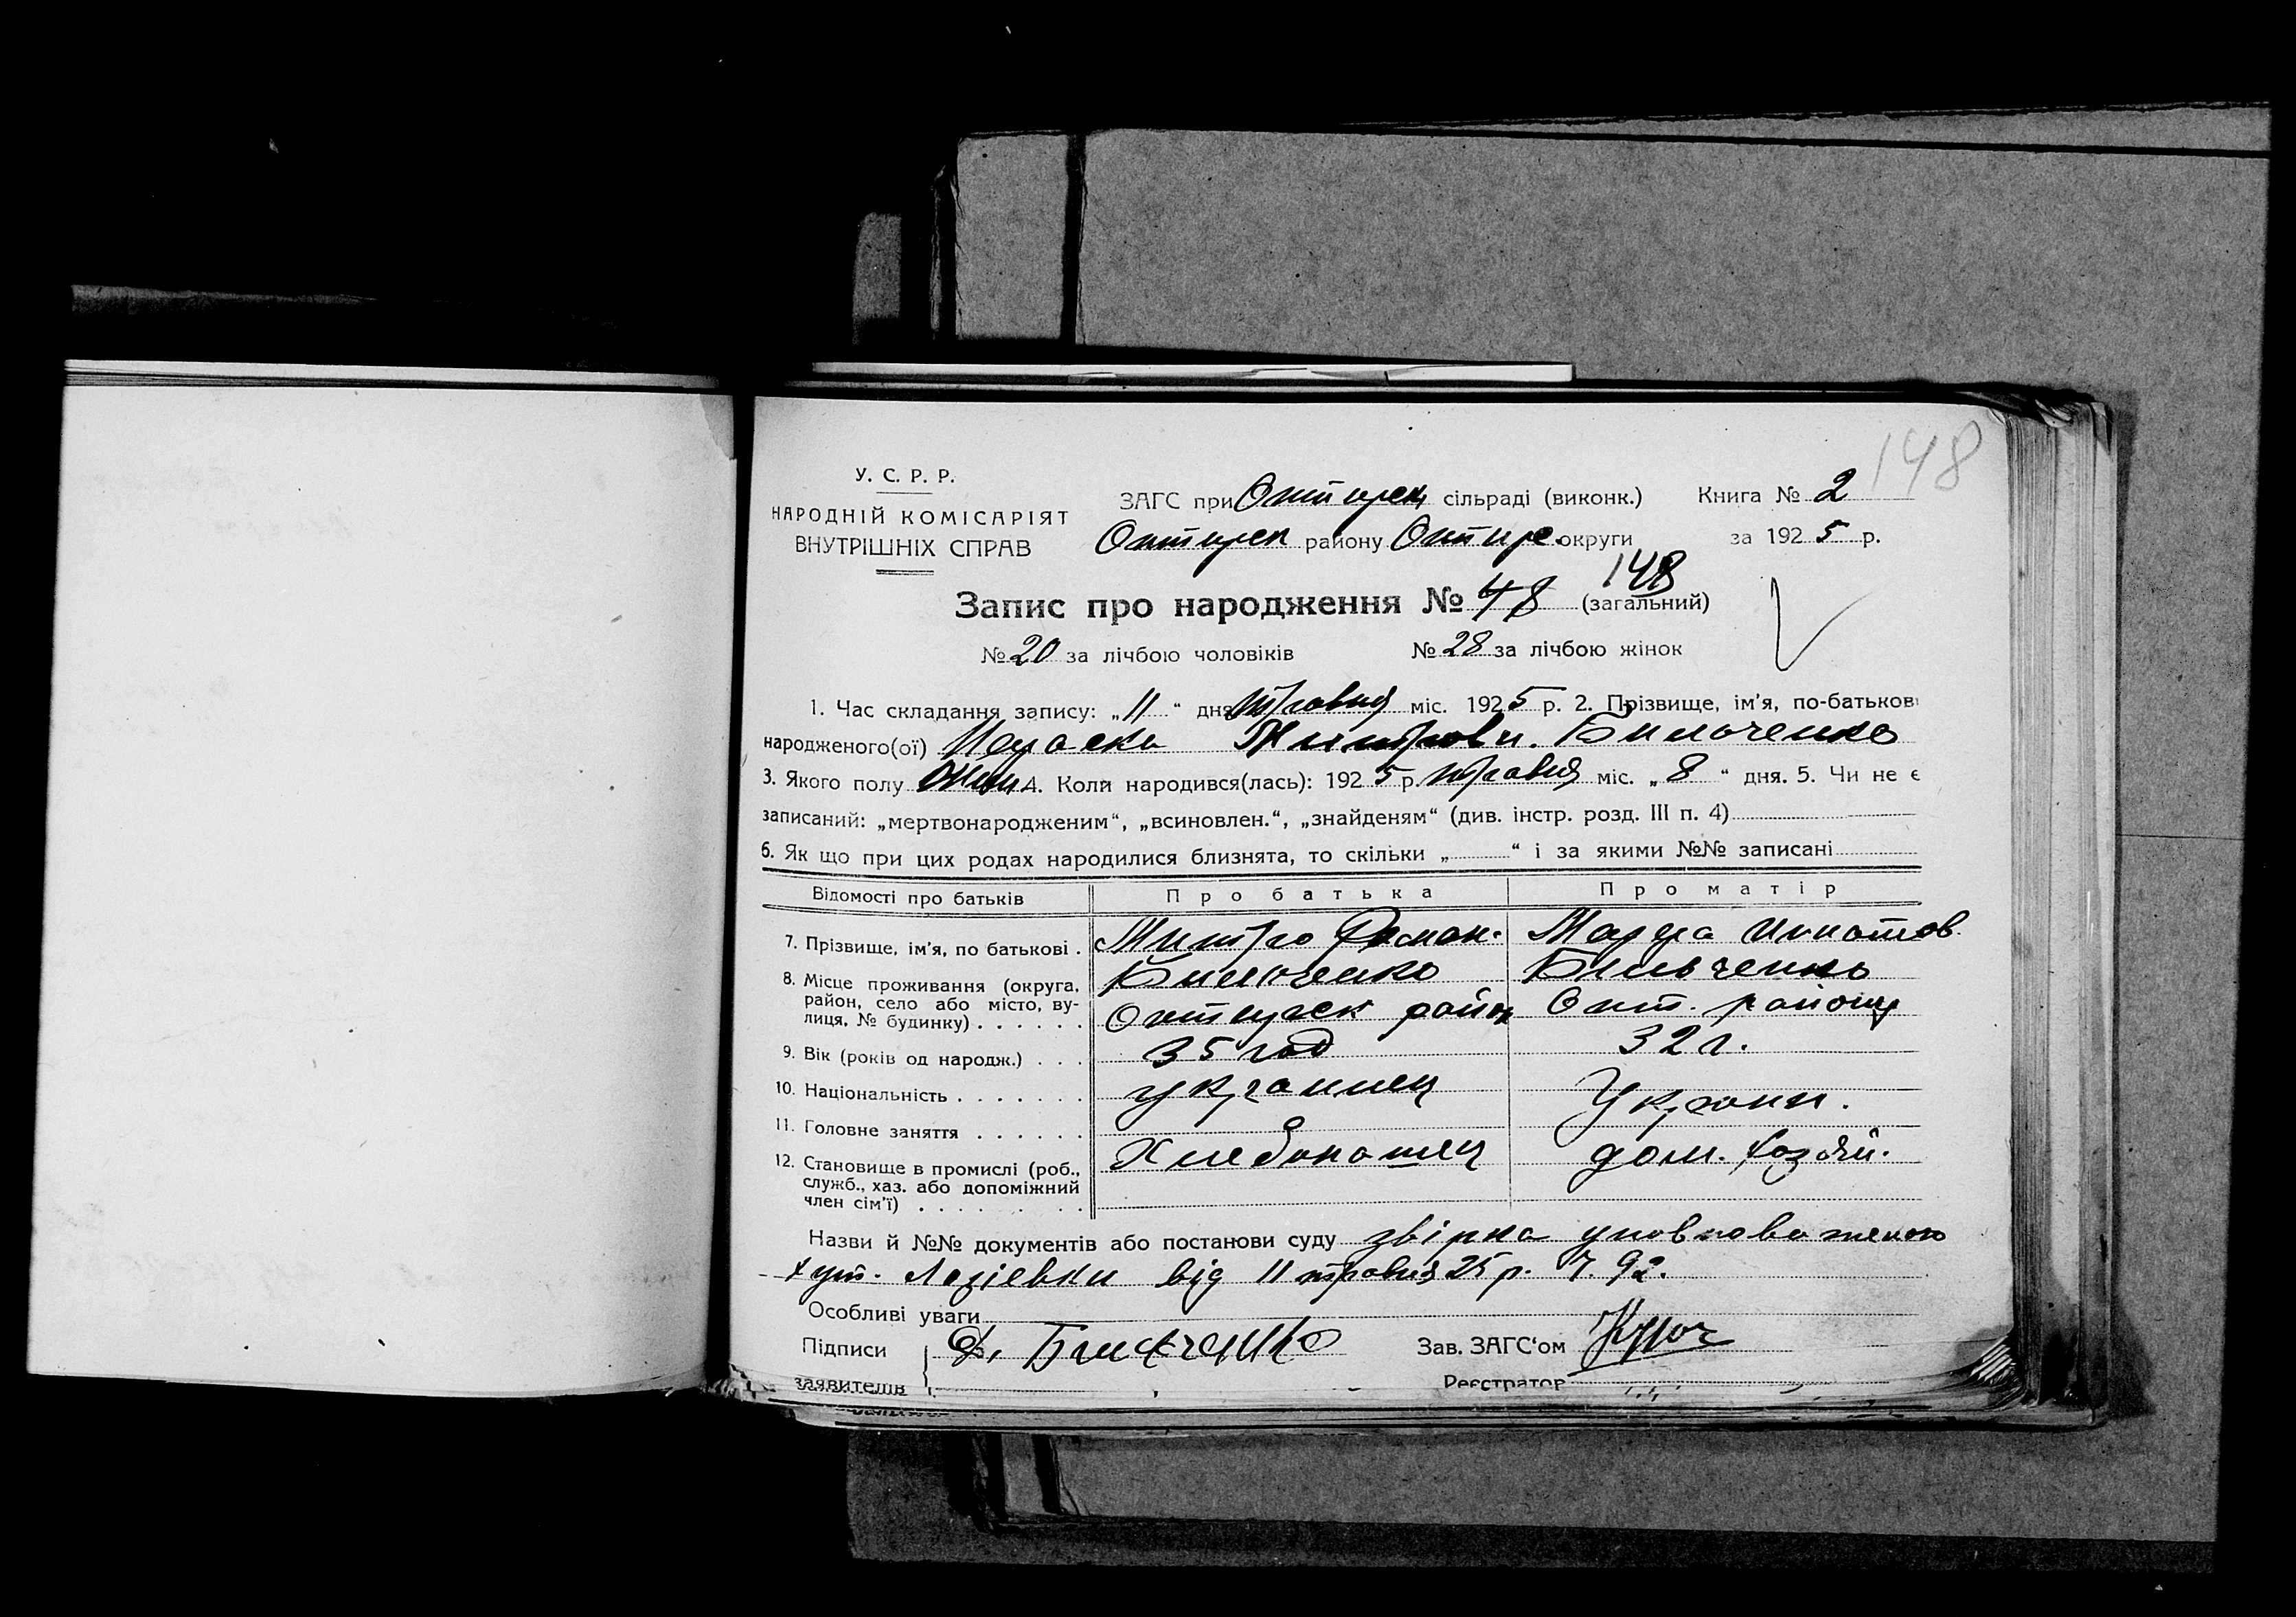 148
У. С. Р. Р.
НАРОДНІЙ КОМІСАРІЯТ
ВНУТРІШНІХ СПРАВ
ЗАГС при Охтирск сільраді (виконк.) Книга № 2
Охтирск району Охтирс. округи за 1925 р.
148
Запис про народження № 48 (загальний)
№ 20 за лічбою чоловіків № 28 за лічбою жінок
1. Час складання запису: „11“ дня травня міс. 1925 р. 2. Прізвище, ім'я, по-батькові
народженого(ої) Параска Митрови. Бильченко
3. Якого полу жин 4. Коли народився(лась): 1925 р. травня міс. „8“ дня. 5. Чи не є
записаний: „мертвонародженим“, „всиновлен.“, „знайденям“ (див. інстр. розд. III п. 4)
6. Як що при цих родах народилися близнята, то скільки „ “ і за якими №№ записані
Відомості про батьків Про батька Про матір
7. Прізвище, ім'я, по батькові . Митро Роман. Марфа Игнатов.
Бильченко Бильченко
8. Місце проживання (округа, район, село або місто, вулиця, № будинку) . . . . . . Охтирск район Охт. району
9. Вік (років од народж.) . . . 35 год 32 г.
10. Національність . . . . . . . украинец Украин.
11. Головне заняття . . . . . . Хлебопашец дом. хозяй.
12. Становище в промислі (роб., служб., хаз. або допоміжний член сім'ї) . . . . . . .
Назви й №№ документів або постанови суду звірка уповноваженого
хут. Лозіевки від 11 травня 25 р. Ч. 92.
Особливі уваги
Підписи Д. Бильченко Зав. ЗАГС'ом
заявителів Реєстратор